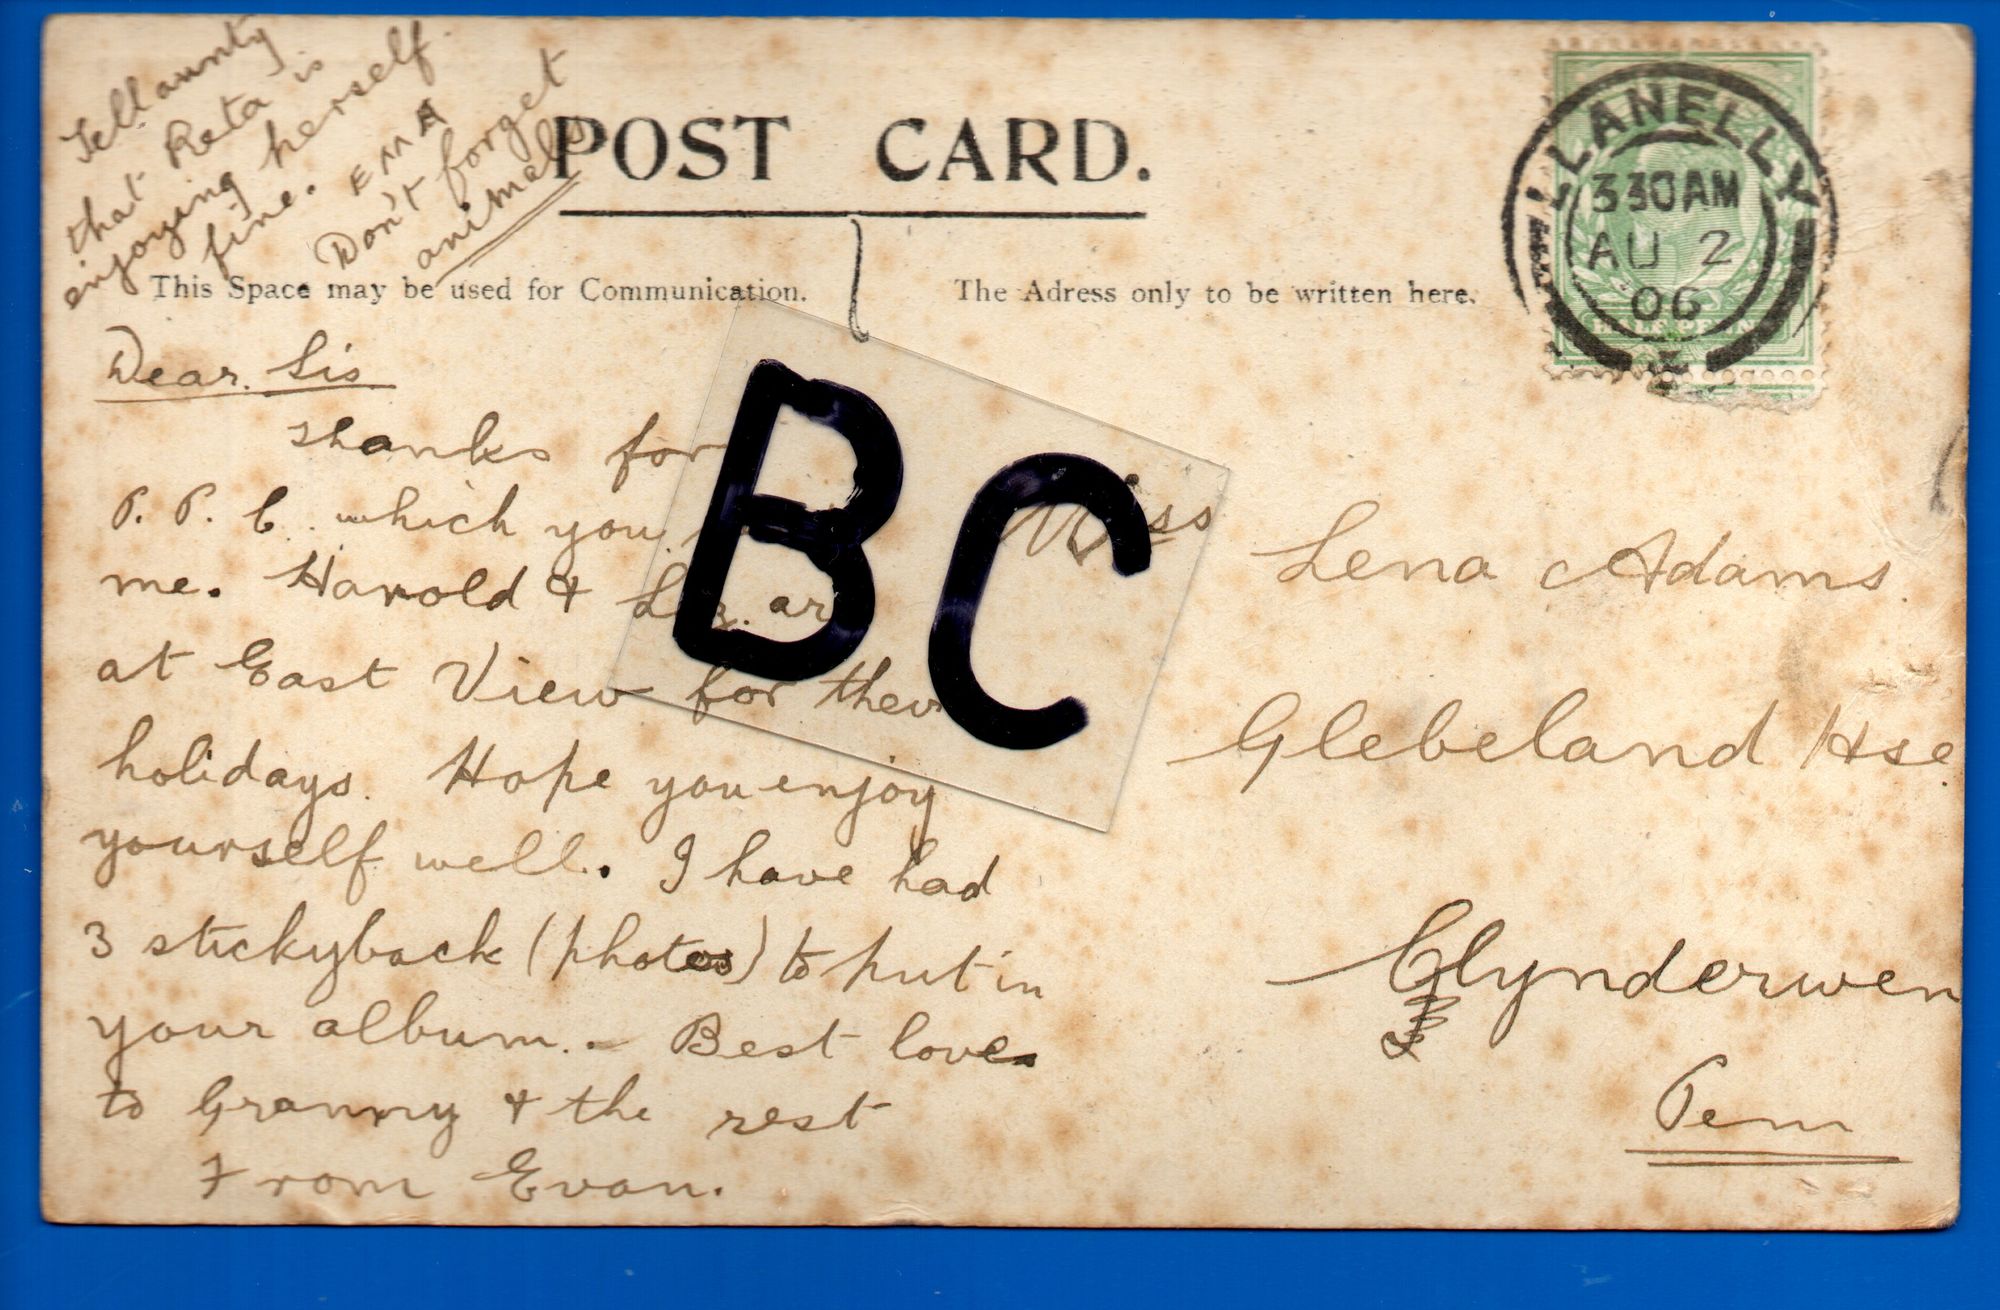 Tell aunty
that Reta is
enjoying herself.
fine. EMA
Don't forget
animels
POST CARD.
This Space may be used for Communication.
The Adress only to be written here.
LLANELLY
330AM
AU 2
06
HALF PENNY
Dear Sis
Thanks for
P. P. C. which you
me. Harold & Liz. are
at East View for their
holidays. Hope you enjoy
yourself well. I have had
3 stickyback (photos) to put in
your album. - Best love
to Granny & the rest
From Evan.
BC
Miss Lena Adams.
Glebeland Hse.
Clynderwen
Pem